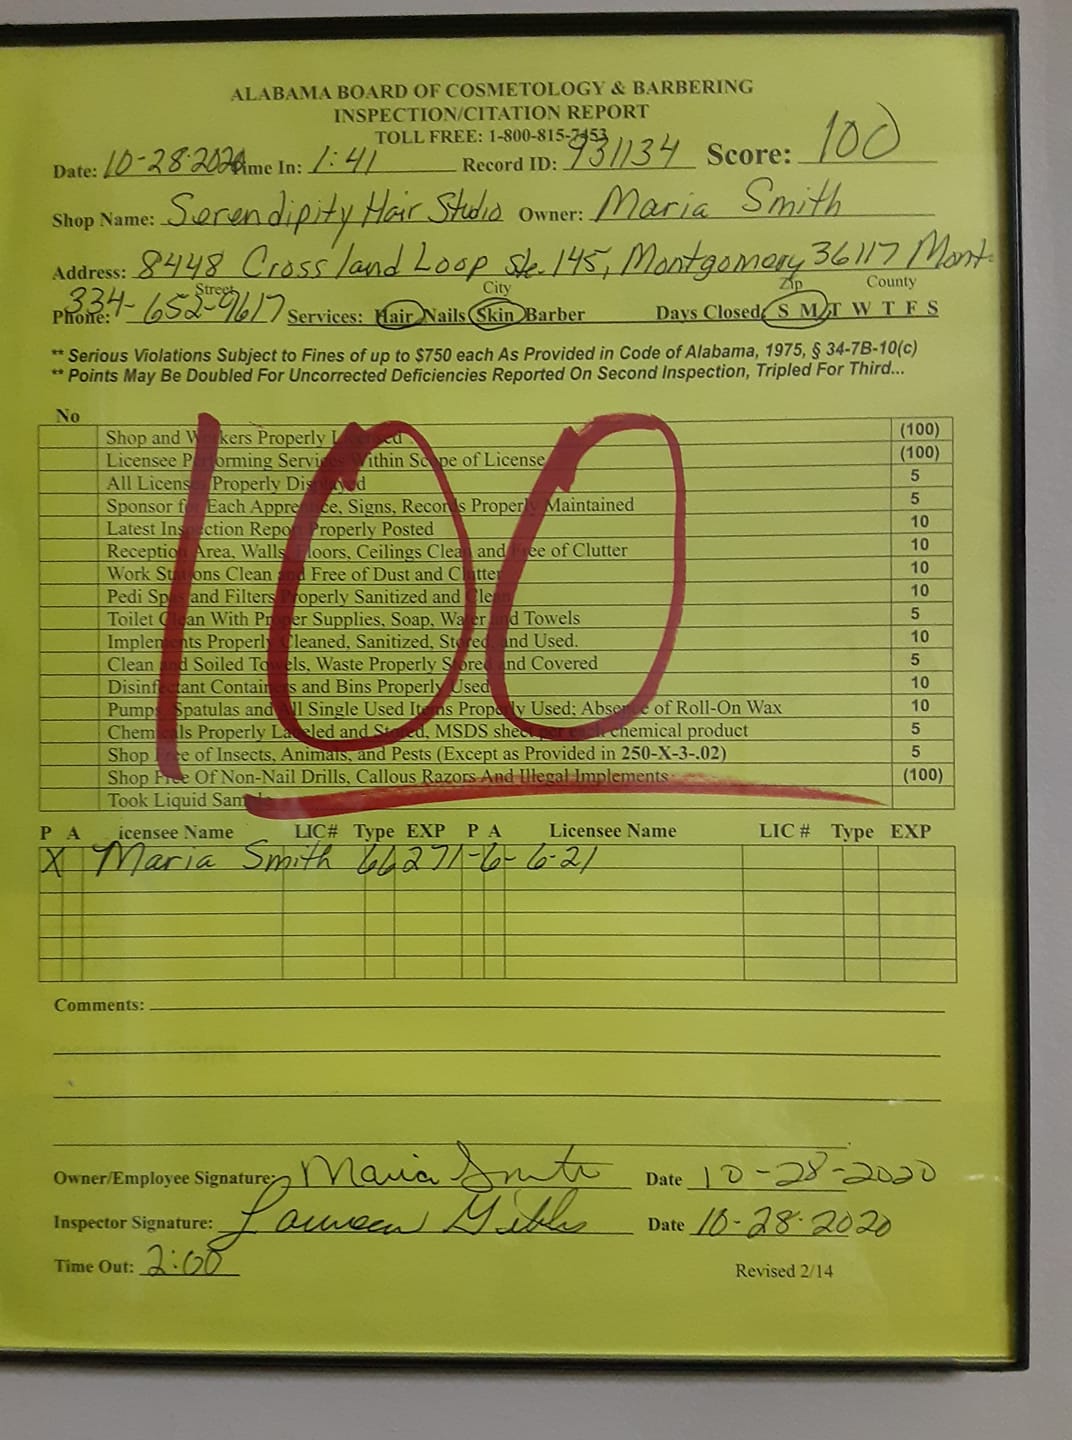 ALABAMA BOARD OF COSMETOLOGY & BARBERING
INSPECTION/CITATION REPORT
TOLL FREE: 1-800-815-7453
Date: 10-28-2020 Time In: 1:41 Record ID: 931134 Score: 100
Shop Name: Serendipity Hair Studio Owner: Maria Smith
Address: 8448 Crossland Loop Ste. 145, Montgomery 36117 Mont.
Street City Zip County
Phone: 334-652-9617 Services: Hair Nails Skin Barber Days Closed S M T W T F S
** Serious Violations Subject to Fines of up to $750 each As Provided in Code of Alabama, 1975, § 34-7B-10(c)
** Points May Be Doubled For Uncorrected Deficiencies Reported On Second Inspection, Tripled For Third...
No
100
Shop and Workers Properly Licensed (100)
Licensee Performing Services Within Scope of License (100)
All Licenses Properly Displayed 5
Sponsor for Each Apprentice, Signs, Records Properly Maintained 5
Latest Inspection Report Properly Posted 10
Reception Area, Walls, Floors, Ceilings Clean and Free of Clutter 10
Work Stations Clean and Free of Dust and Clutter 10
Pedi Spas and Filters Properly Sanitized and Clean 10
Toilet Clean With Proper Supplies, Soap, Water and Towels 5
Implements Properly Cleaned, Sanitized, Stored and Used. 10
Clean and Soiled Towels, Waste Properly Stored and Covered 5
Disinfectant Containers and Bins Properly Used 10
Pumps, Spatulas and All Single Used Items Properly Used; Absence of Roll-On Wax 10
Chemicals Properly Labeled and Stored, MSDS sheet per each chemical product 5
Shop Free of Insects, Animals, and Pests (Except as Provided in 250-X-3-.02) 5
Shop Free Of Non-Nail Drills, Callous Razors And Illegal Implements (100)
Took Liquid Sample
P A icensee Name LIC# Type EXP P A Licensee Name LIC # Type EXP
X Maria Smith 66271-6-6-21
Comments:
Owner/Employee Signature: Maria Smith Date 10-28-2020
Inspector Signature: Gibbs Date 10-28-2020
Time Out: 2:00 Revised 2/14